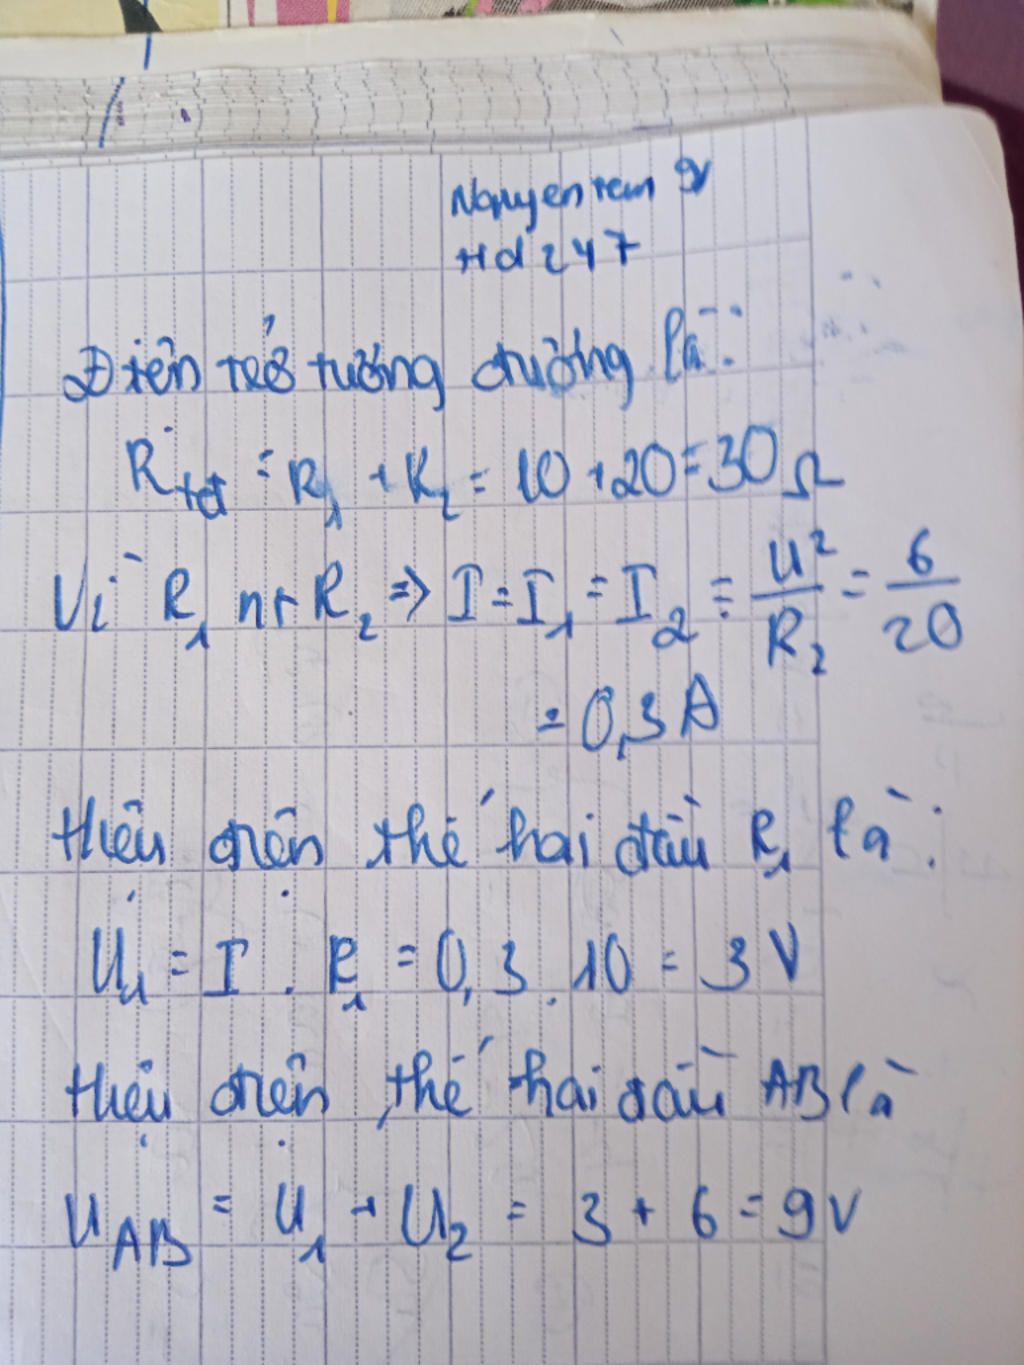 Nguyen nam 9V
Hd 247
Điện trở tương đương là:
Rtđ = R1 + R2 = 10 + 20 = 30 Ω
Vì R1 nt R2 => I = I1 = I2 = U2/R2 = 6/20
= 0,3 A
Hiệu điện thế hai đầu R1 là:
U1 = I . R1 = 0,3 . 10 = 3 V
Hiệu điện thế hai đầu AB là
UAB = U1 + U2 = 3 + 6 = 9V